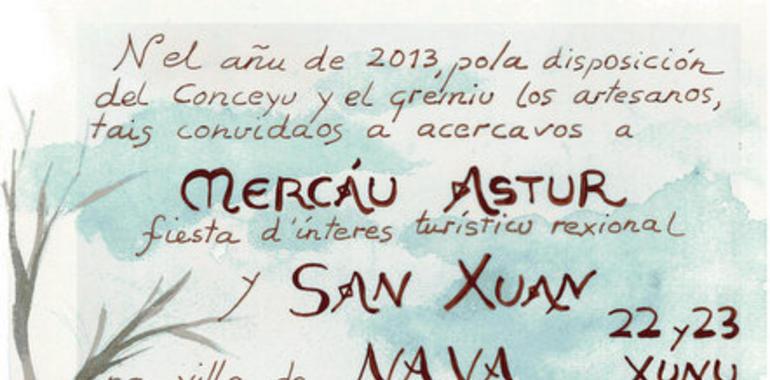 Nel añu de 2013, pola disposición
del Conceyu y el gremiu los artesanos,
tais convidaos a acercavos a
MERCÁU ASTUR
fiesta d'interes turísticu rexional
y SAN XUAN
22 y 23
na villa de NAVA XUNU